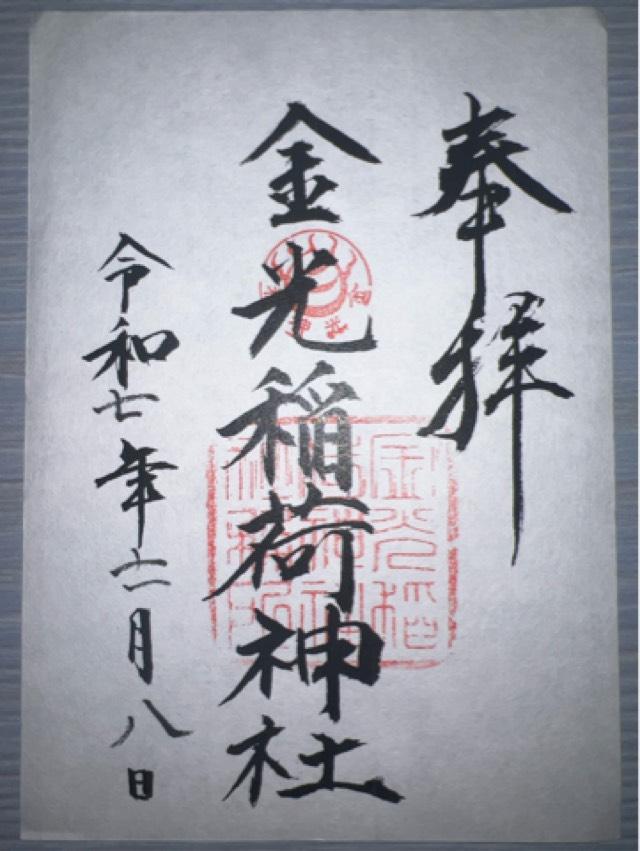 奉拝
金光稲荷神社
令和七年十一月八日
金光稲